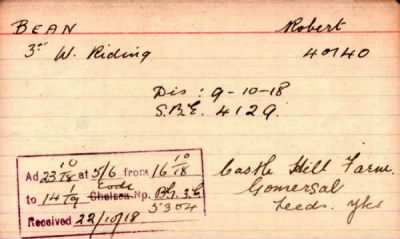 BEAN Robert
3rd W. Riding 40140
Dis: 9-10-18
S.B.E. 4129.
Ad 23 10/18 at 5/6 from 16 10/18
to 14 1/19 Chelsea Np.
5304
Received 22/10/18
Castle Hill Farm.
Gomersal
Leeds. Yks